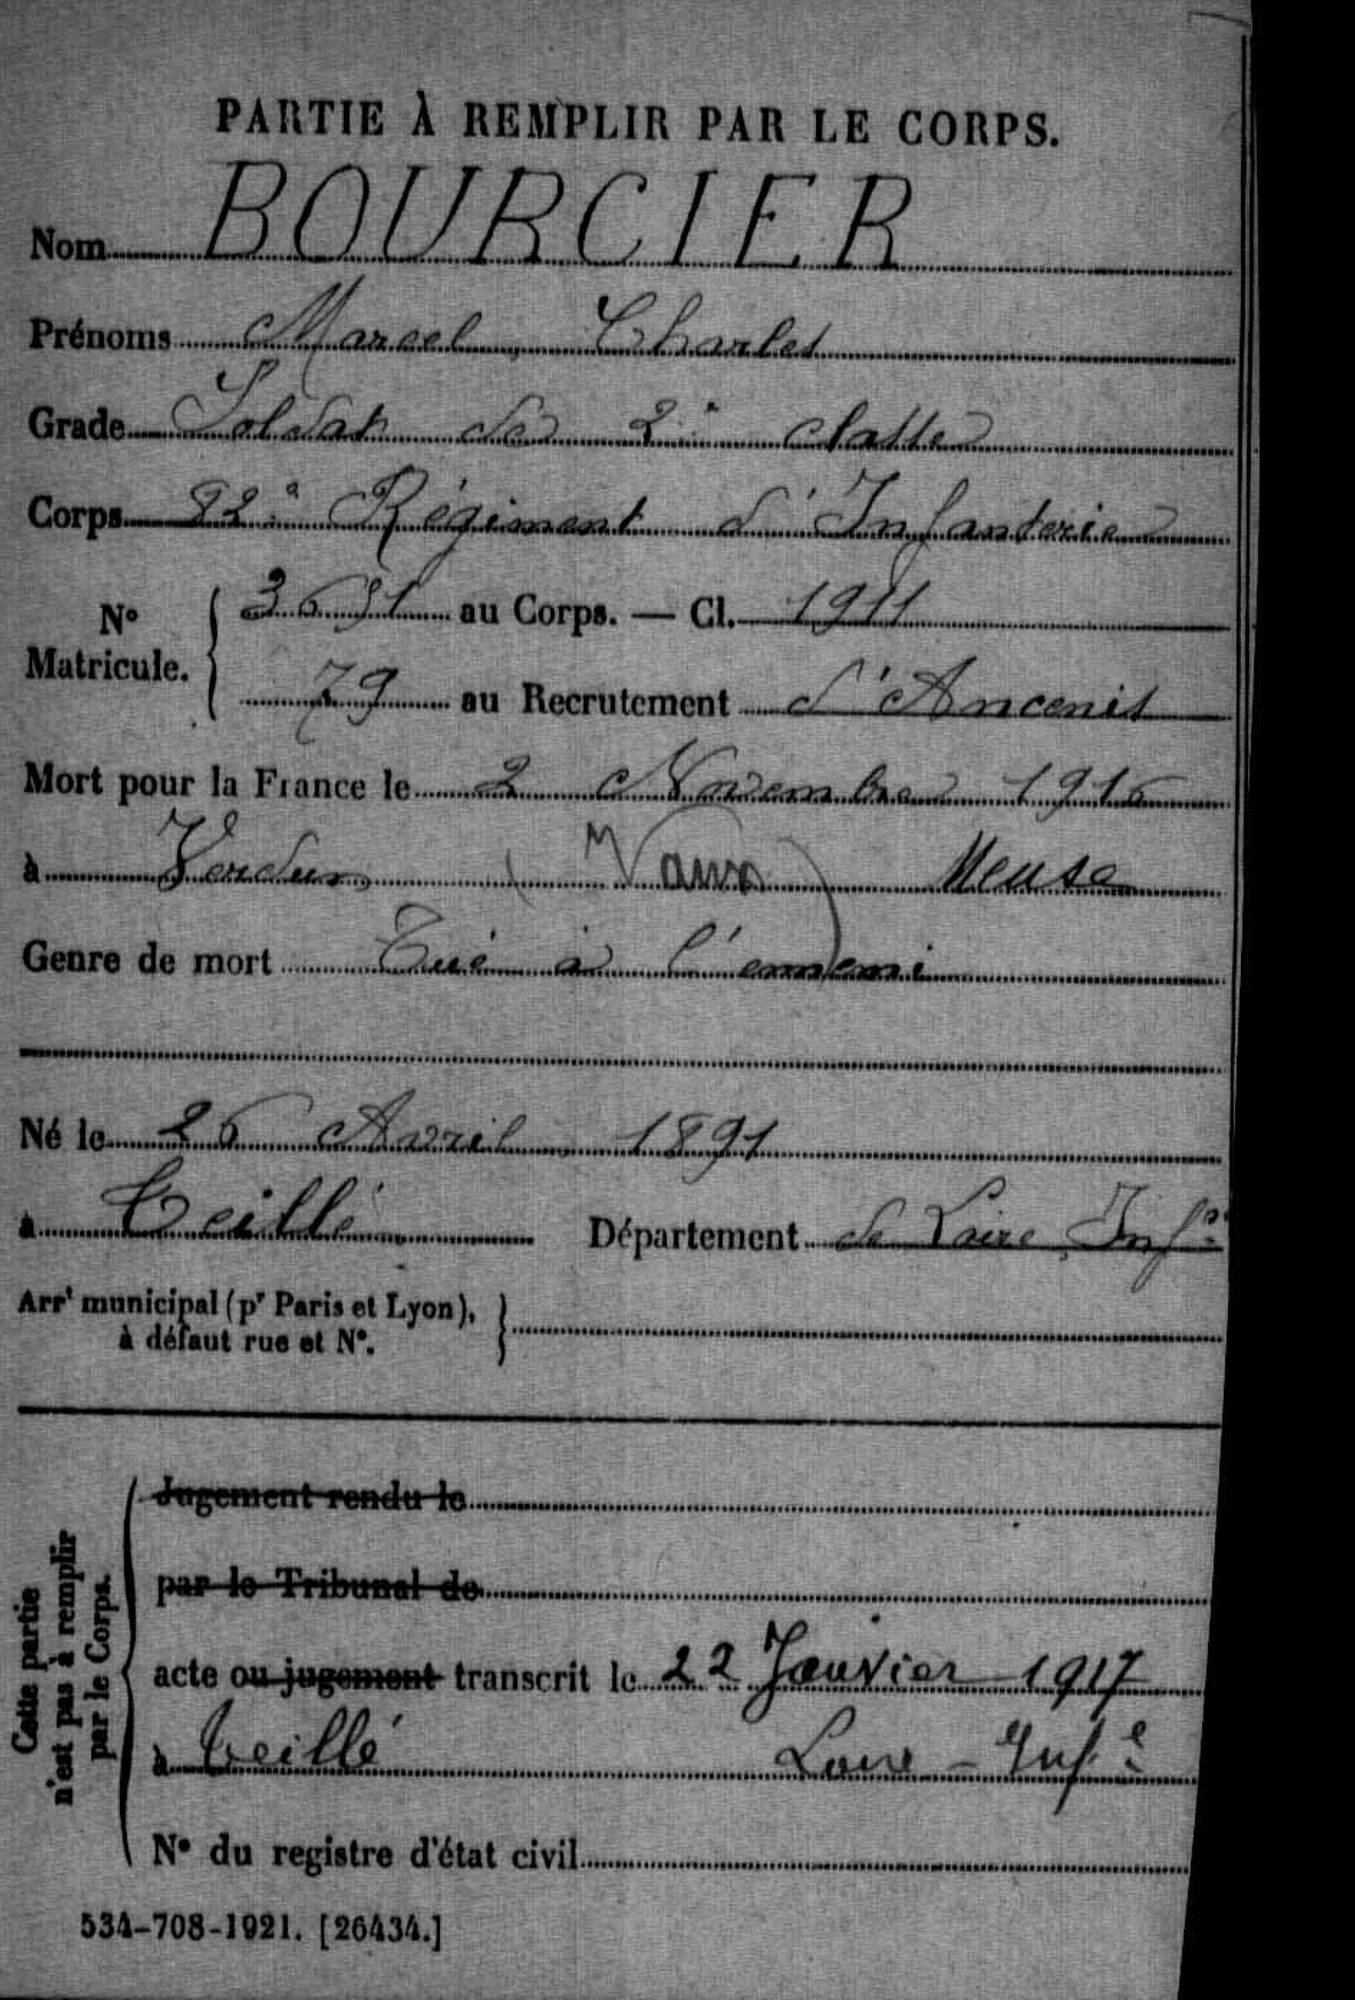 PARTIE À REMPLIR PAR LE CORPS.
Nom BOURCIER
Prénoms Marcel Charles
Grade Soldat de 2e classe
Corps 82e Régiment d'Infanterie
No Matricule. { 3631 au Corps. — Cl. 1911
79 au Recrutement d'Ancenis
Mort pour la France le 2 Novembre 1916
à Verdun (Vaux) Meuse
Genre de mort Tué à l'ennemi
Né le 26 Avril 1891
à Teillé Département de Loire Infre
Arrt municipal (pr Paris et Lyon), à défaut rue et No.
Cette partie n'est pas à remplir par le Corps.
Jugement rendu le
par le Tribunal de
acte ou jugement transcrit le 22 Janvier 1917
à Teillé Loire - Infre
No du registre d'état civil
534-708-1921. [26434.]